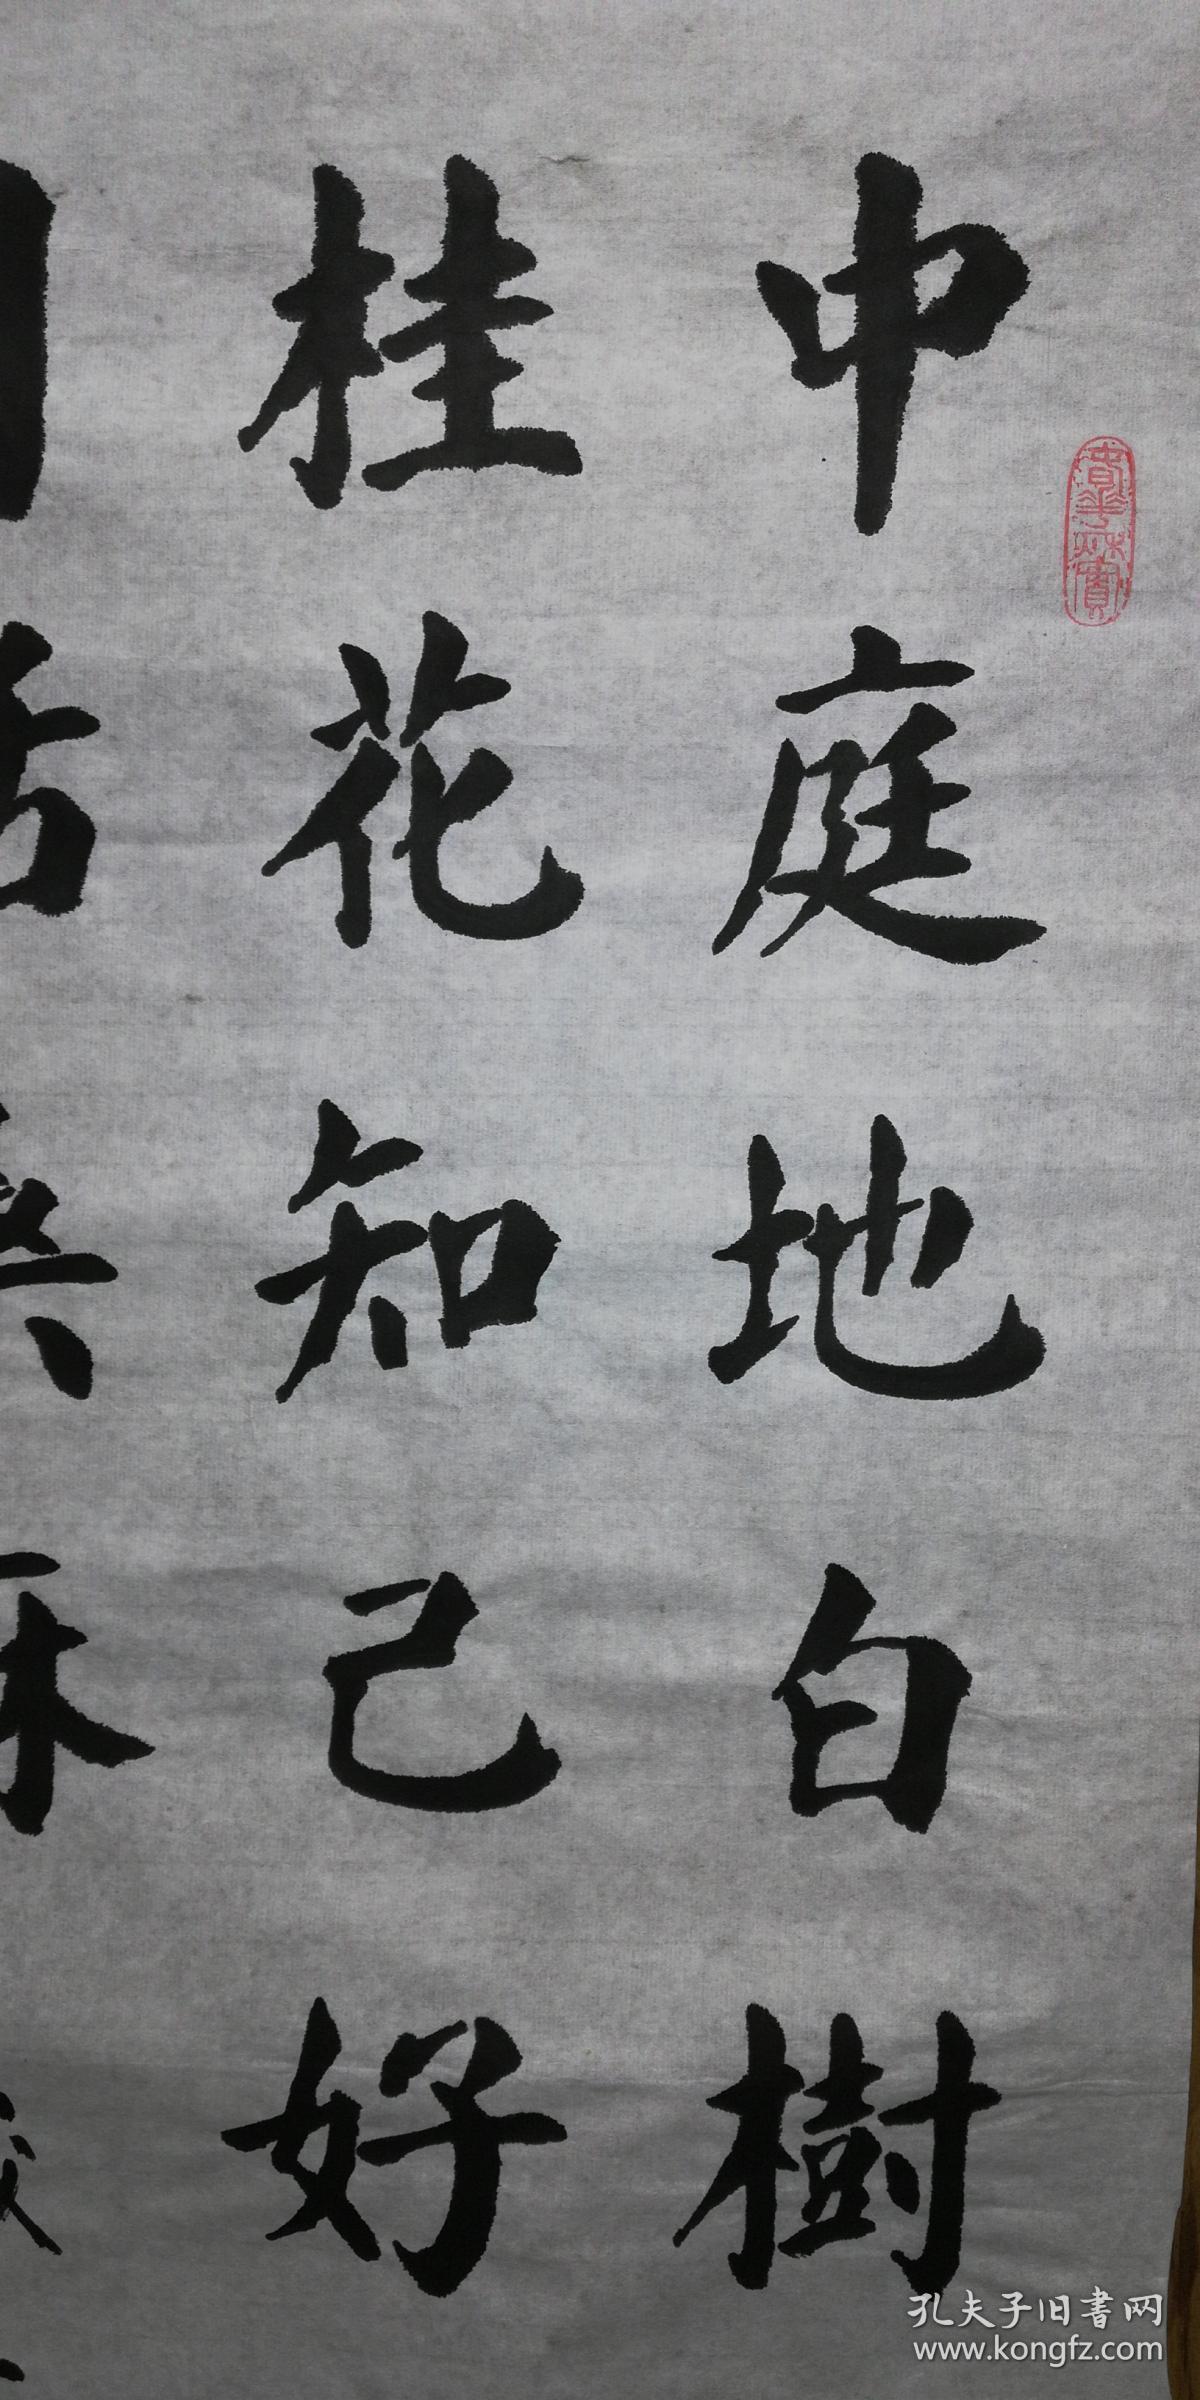 中庭地白樹
桂花知己好
春華秋實
孔夫子旧书网
www.kongfz.com